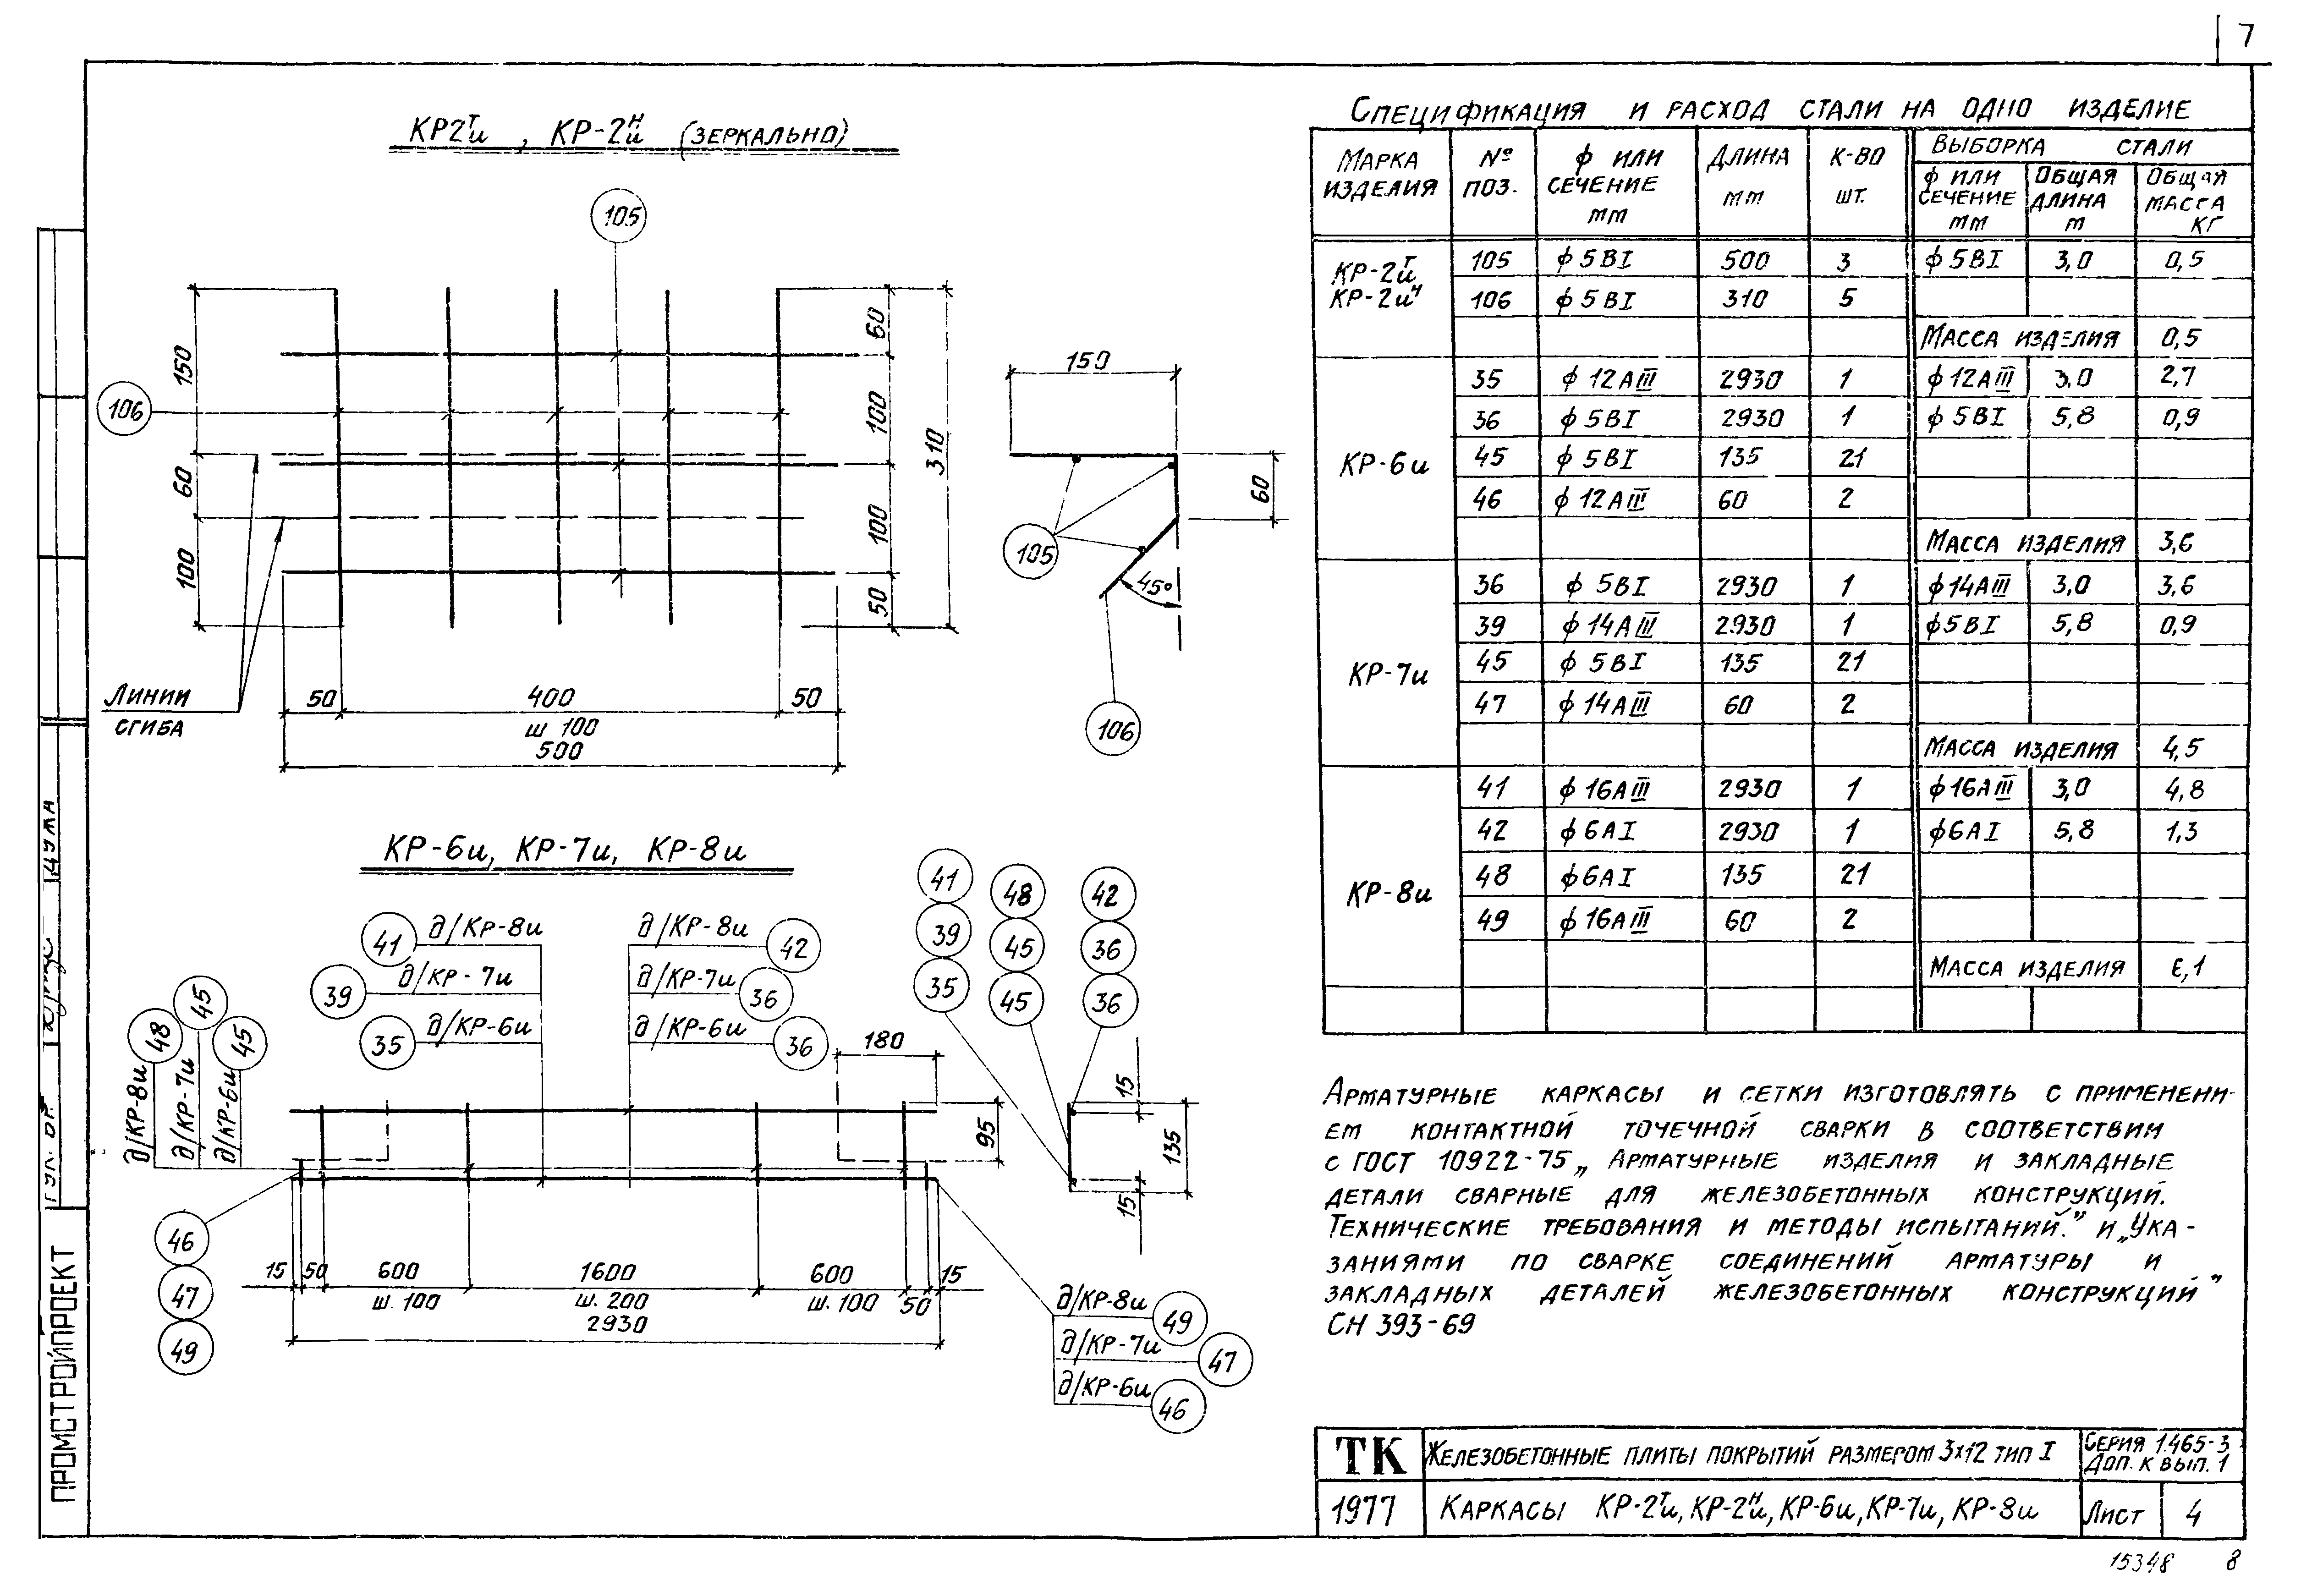 7
КР2ᵀи, КР-2ᴴи (зеркально)
105
106
150
60
100
60
100
100
50
310
Линии
сгиба
50
400
50
ш 100
500
150
60
45°
105
106
КР-6и, КР-7и, КР-8и
41 д/КР-8и
39 д/КР-7и
35 д/КР-6и
д/КР-8и 42
д/КР-7и 36
д/КР-6и 36
48 д/КР-8и
45 д/КР-7и
45 д/КР-6и
180
95
46
47
49
15
50
600
1600
600
50
15
ш. 100
ш. 200
ш. 100
2930
41 48 42
39 45 36
35 45 36
15
135
15
д/КР-8и 49
д/КР-7и 47
д/КР-6и 46
Спецификация и расход стали на одно изделие
Марка изделия | № поз. | ф или сечение мм | Длина мм | К-во шт. | Выборка стали
ф или сечение мм | Общая длина м | Общая масса кг
КР-2ᵀи
КР-2иᴴ
105 ф5ВI 500 3 ф5ВI 3,0 0,5
106 ф5ВI 310 5
Масса изделия 0,5
КР-6и
35 ф12АIII 2930 1 ф12АIII 3,0 2,7
36 ф5ВI 2930 1 ф5ВI 5,8 0,9
45 ф5ВI 135 21
46 ф12АIII 60 2
Масса изделия 3,6
КР-7и
36 ф5ВI 2930 1 ф14АIII 3,0 3,6
39 ф14АIII 2930 1 ф5ВI 5,8 0,9
45 ф5ВI 135 21
47 ф14АIII 60 2
Масса изделия 4,5
КР-8и
41 ф16АIII 2930 1 ф16АIII 3,0 4,8
42 ф6АI 2930 1 ф6АI 5,8 1,3
48 ф6АI 135 21
49 ф16АIII 60 2
Масса изделия 6,1
Арматурные каркасы и сетки изготовлять с применени-
ем контактной точечной сварки в соответствии
с ГОСТ 10922-75 „Арматурные изделия и закладные
детали сварные для железобетонных конструкций.
Технические требования и методы испытаний." и „Ука-
заниями по сварке соединений арматуры и
закладных деталей железобетонных конструкций"
СН 393-69
ТК
Железобетонные плиты покрытий размером 3х12 тип I
Серия 1.465-3
Доп. к вып. 1
1977
Каркасы КР-2ᵀи, КР-2ᴴи, КР-6и, КР-7и, КР-8и
Лист 4
15348 8
ПРОМСТРОЙПРОЕКТ